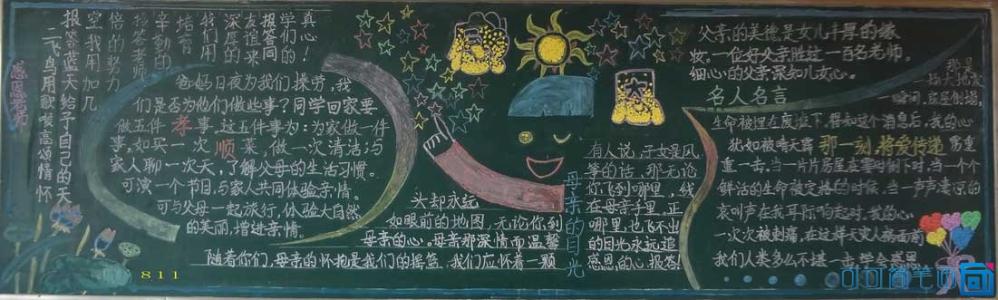 感恩无
飞鸟用歌唱高颂情怀
报答蓝天给予自己的天
空我用加几
倍的努力
报答老师
辛勤的
培育
我们用
深度的
友谊来
报答同
学们的
真心!
爸妈日夜为我们操劳,我
们是否为他们做些事?同学回家要
做五件孝事,这五件事为:为家做一件
事,如买一次顺菜,做一次清洁;与
家人聊一次天,了解父母的生活习惯。
可演一个节目,与家人共同体验亲情。
可与父母一起旅行,体验大自然
的美丽,增进亲情。
母亲的目光
有人说,子女是风
筝的话,那无论
你飞到哪里,线
在母亲手里,正
哪里,也飞不出
的目光永远追
头却永远
如眼前的地图,无论你到
母亲的心。母亲那深情而温馨
随着你们,母亲的怀抱是我们的摇篮,我们应怀着一颗感恩的心报答!
父亲的美德是女儿丰厚的嫁
妆。一位好父亲胜过一百名老师。
细心的父亲深知儿女心。
名人名言
那一刻,将爱传递
那是
瞬间,房屋倒塌,
生命被埋在废墟下,得知这个消息后,我的心
犹如被晴天霹
重一击,当一片片房屋在霎时倒下时,当一个个
鲜活的生命被定格的时候,当一声声凄凉的
哀叫声在我耳际响起时,我的心
一次次被刺痛,在这样天灾人祸面前
我们人类多么不堪一击,学会感恩
811
可可简笔画